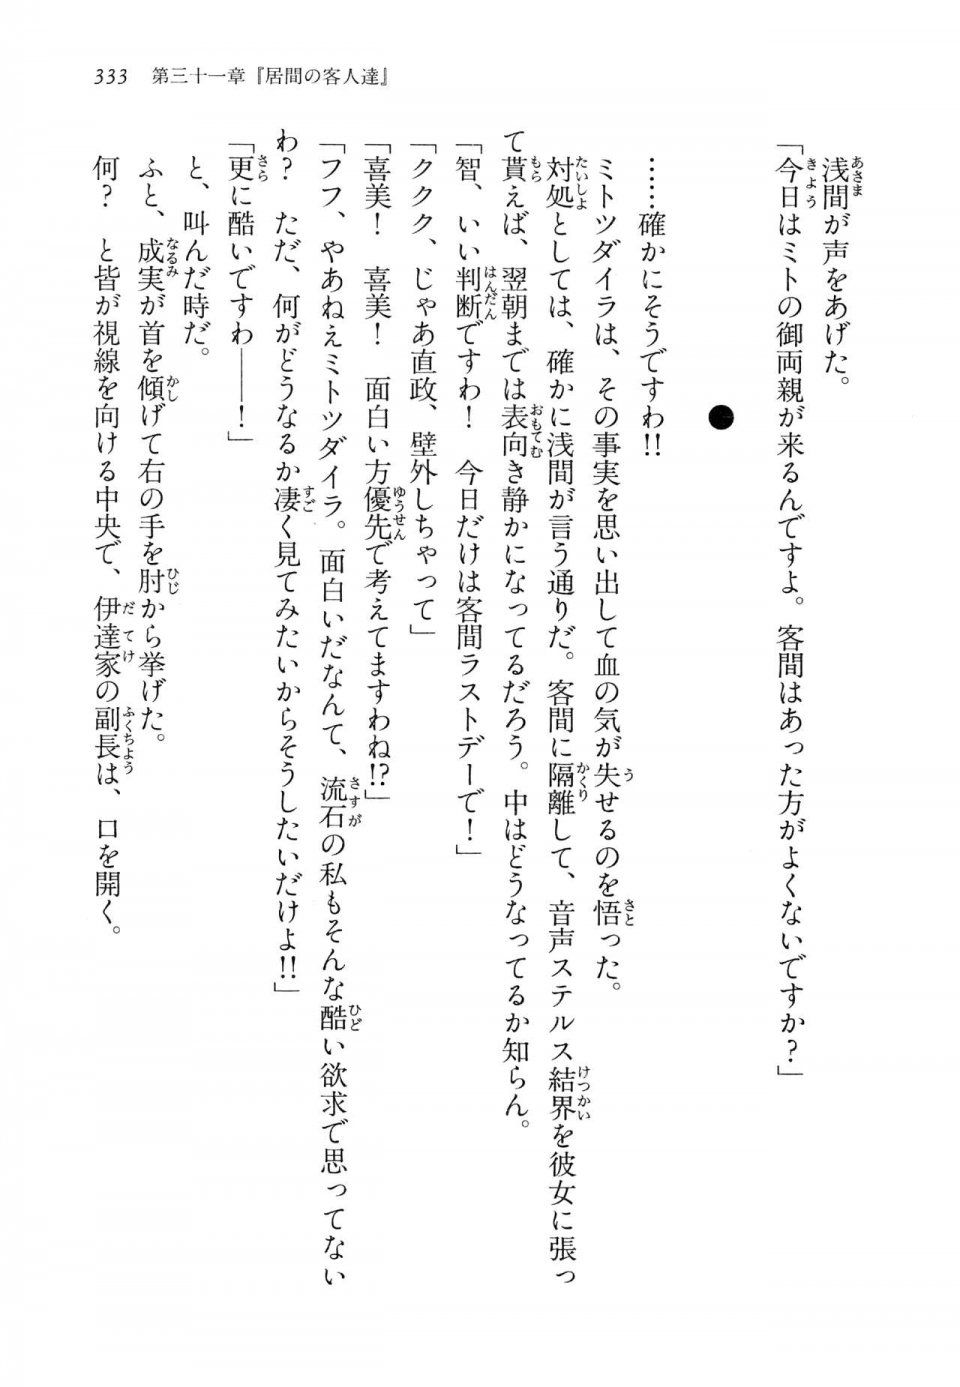 333 第三十一章『居間の客人達』
浅間が声をあげた。
「今日はミトの御両親が来るんですよ。客間はあった方がよくないですか?」
●
……確かにそうですわ!!
ミトツダイラは、その事実を思い出して血の気が失せるのを悟った。
対処としては、確かに浅間が言う通りだ。客間に隔離して、音声ステルス結界を彼女に張っ
て貰えば、翌朝までは表向き静かになってるだろう。中はどうなってるか知らん。
「智、いい判断ですわ! 今日だけは客間ラストデーで!」
「ククク、じゃあ直政、壁外しちゃって」
「喜美! 喜美! 面白い方優先で考えてますわね!?」
「フフ、やあねえミトツダイラ。面白いだなんて、流石の私もそんな酷い欲求で思ってない
わ? ただ、何がどうなるか凄く見てみたいからそうしたいだけよ!!」
「更に酷いですわ――!」
と、叫んだ時だ。
ふと、成実が首を傾げて右の手を肘から挙げた。
何? と皆が視線を向ける中央で、伊達家の副長は、口を開く。